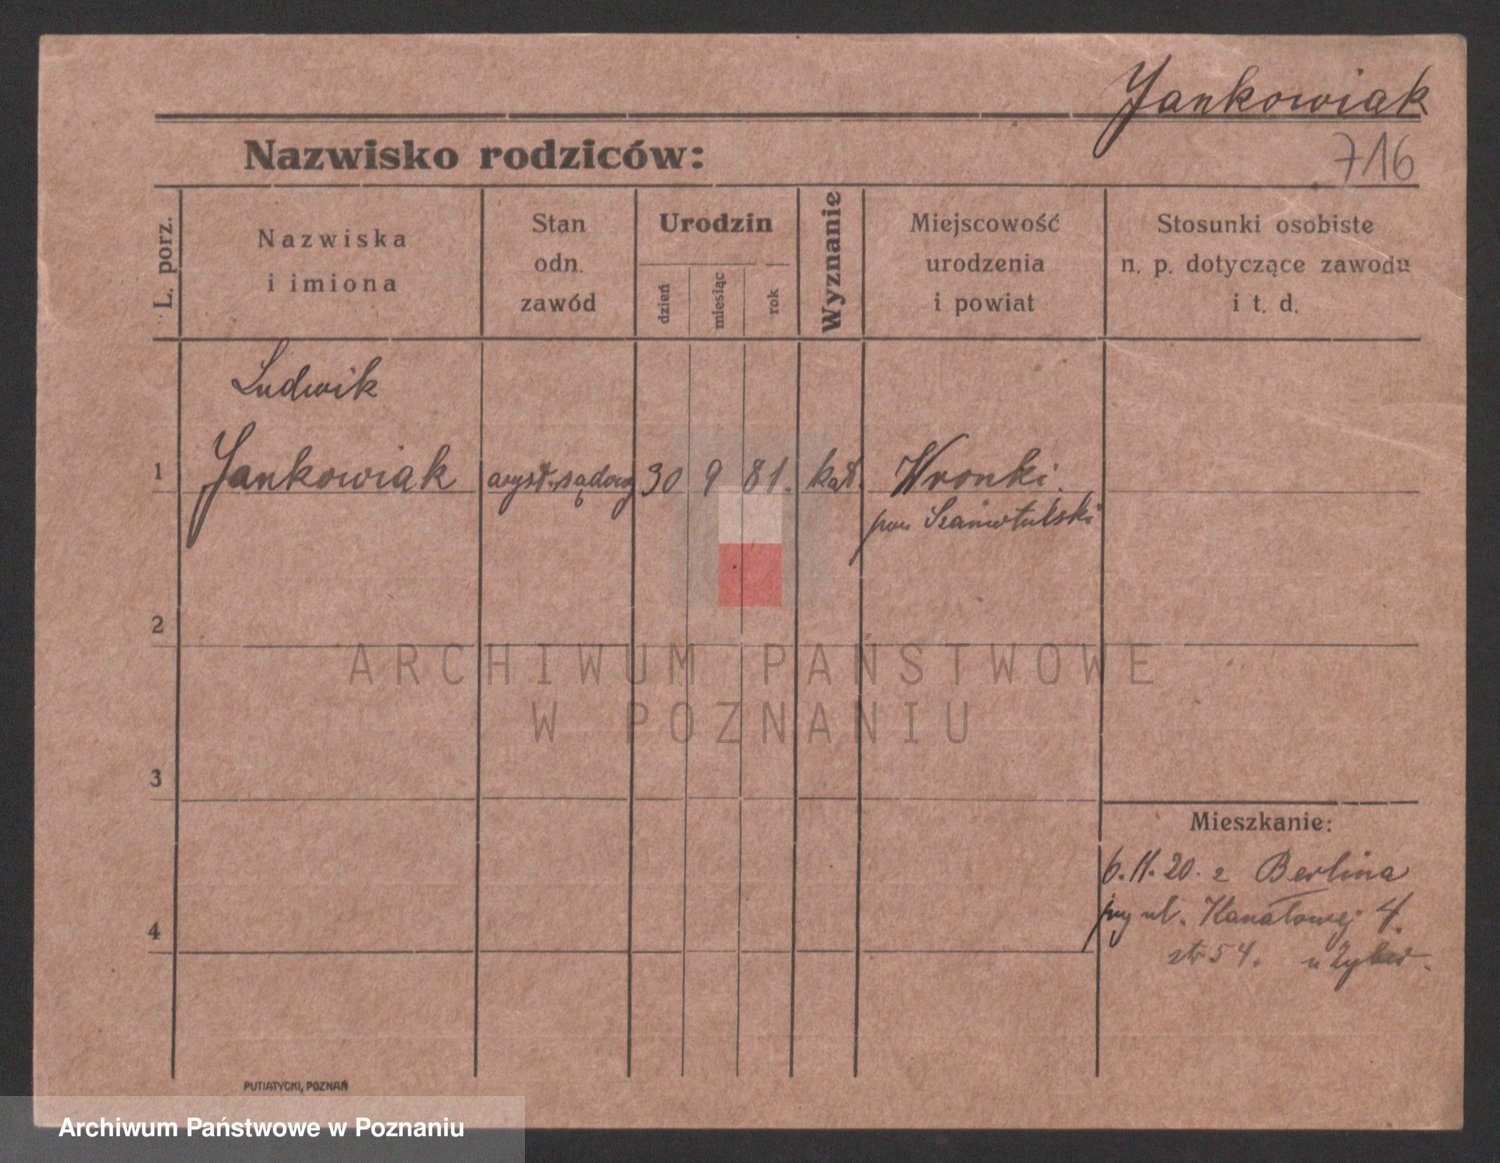 Jankowiak
716
Nazwisko rodziców:
L. porz.
Nazwiska
i imiona
Stan
odn.
zawód
Urodzin
dzień
miesiąc
rok
Wyznanie
Miejscowość
urodzenia
i powiat
Stosunki osobiste
n. p. dotyczące zawodu
i t. d.
Ludwik
1 Jankowiak asyst. sądowy 30 9 81. kat. Wronki.
pow Szamotulski
2
ARCHIWUM PAŃSTWOWE
W POZNANIU
3
Mieszkanie:
6.11.20. z Berlina
4 przy ul. Kanałowej 4.
str 54. u
PUTIATYCKI, POZNAŃ
Archiwum Państwowe w Poznaniu